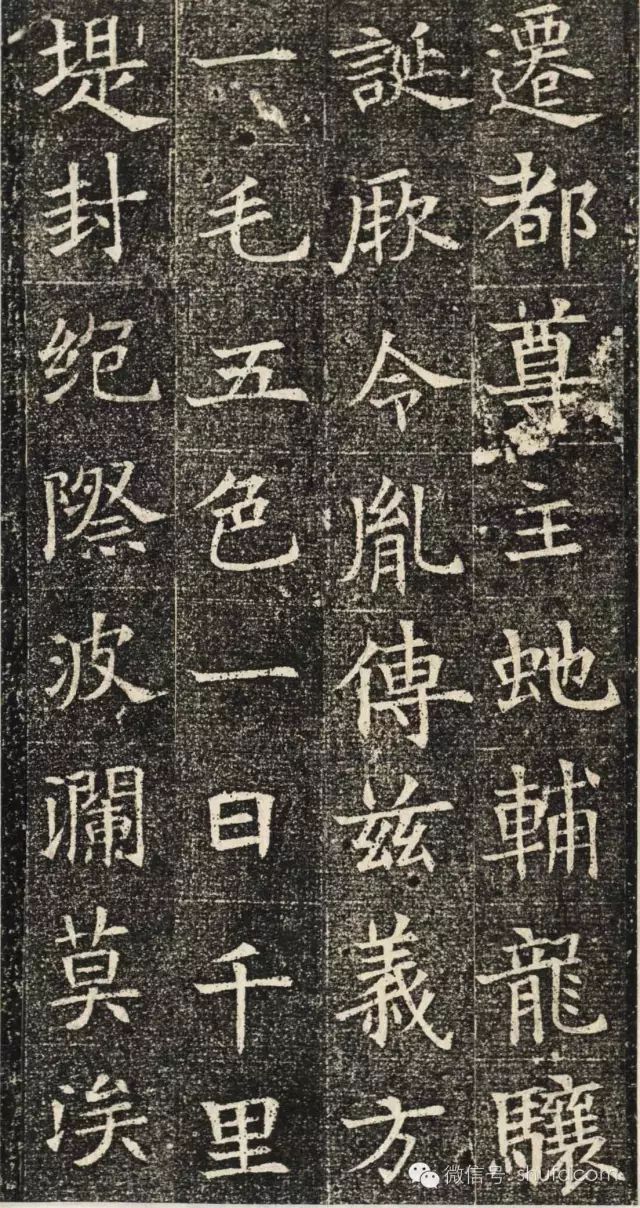 遷都尊主虵輔龍驤
誕厥令胤傳兹義方
一毛五色一日千里
堤封絶際波瀾莫涘
微信号: shufdcom